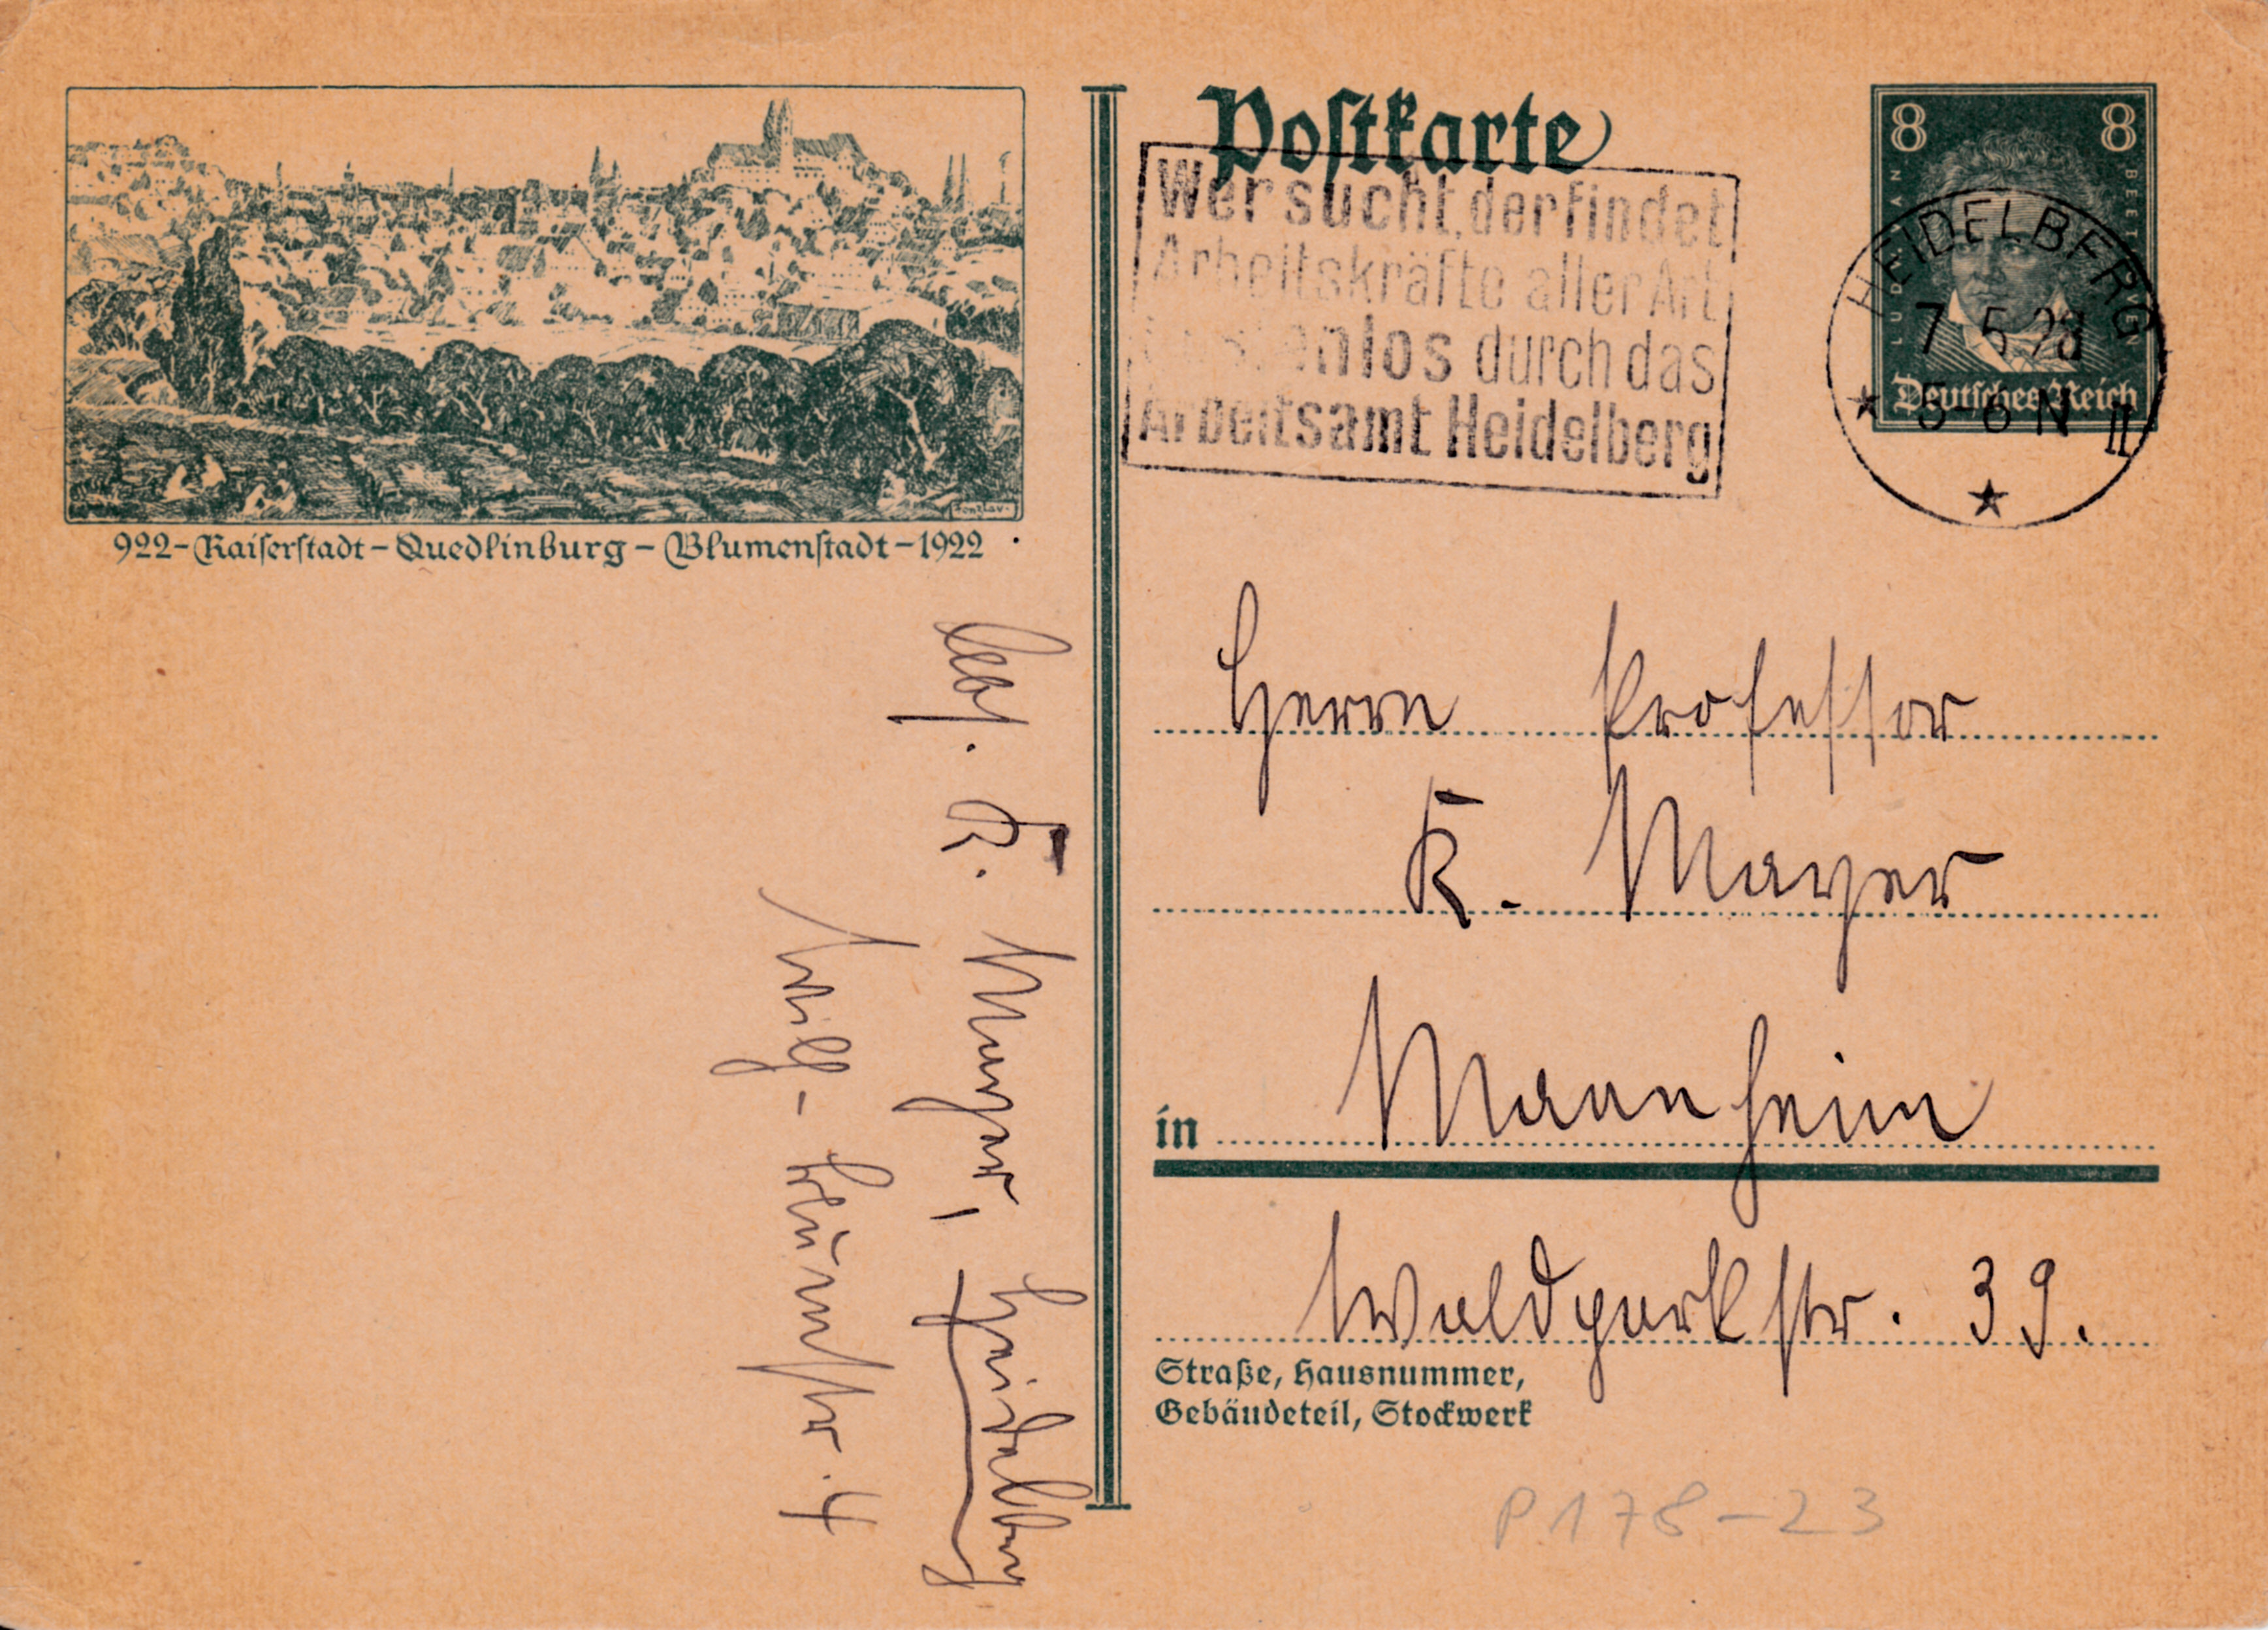 Postkarte
8 8
LUDWIG VAN BEETHOVEN
Deutsches Reich
HEIDELBERG
7.5.28
5-6 N
II
Wer sucht, der findet
Arbeitskräfte aller Art
kostenlos durch das
Arbeitsamt Heidelberg
922-Kaiserstadt-Quedlinburg-Blumenstadt-1922
Herrn Professor
K. Mayer
in Mannheim
Waldparkstr. 39.
Straße, Hausnummer,
Gebäudeteil, Stockwerk
P178-23
Abs. K. Mayer, Heidelberg
4